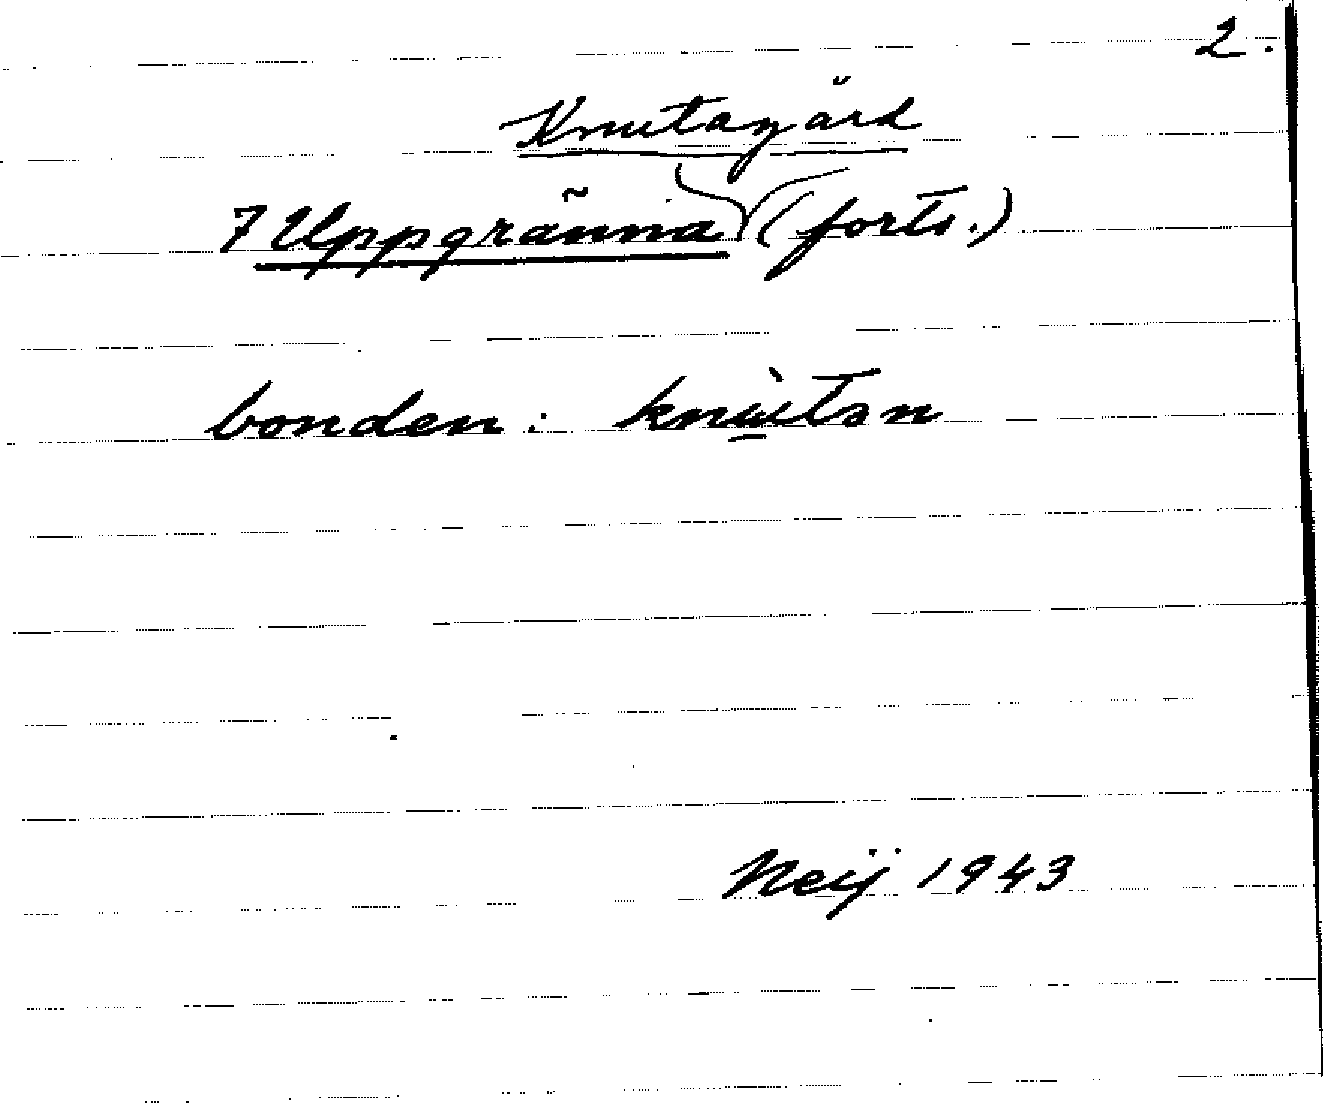 2.
Knutagård
7 Uppgränna (forts.)
bonden: knùtən
Neij 1943